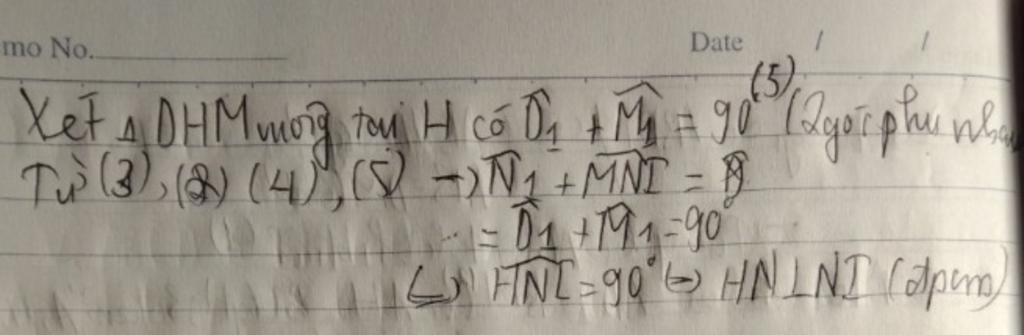 mo No.
Date / /
Xét △ DHM vuông tại H có D̂₁ + M̂₁ = 90° (5) (2 góc phụ nhau
Từ (3), (2) (4), (5) → N̂₁ + MNI^ =
= D̂₁ + M̂₁ = 90°
(=) HNI^ = 90° (=) HN ⊥ NI (đpcm)